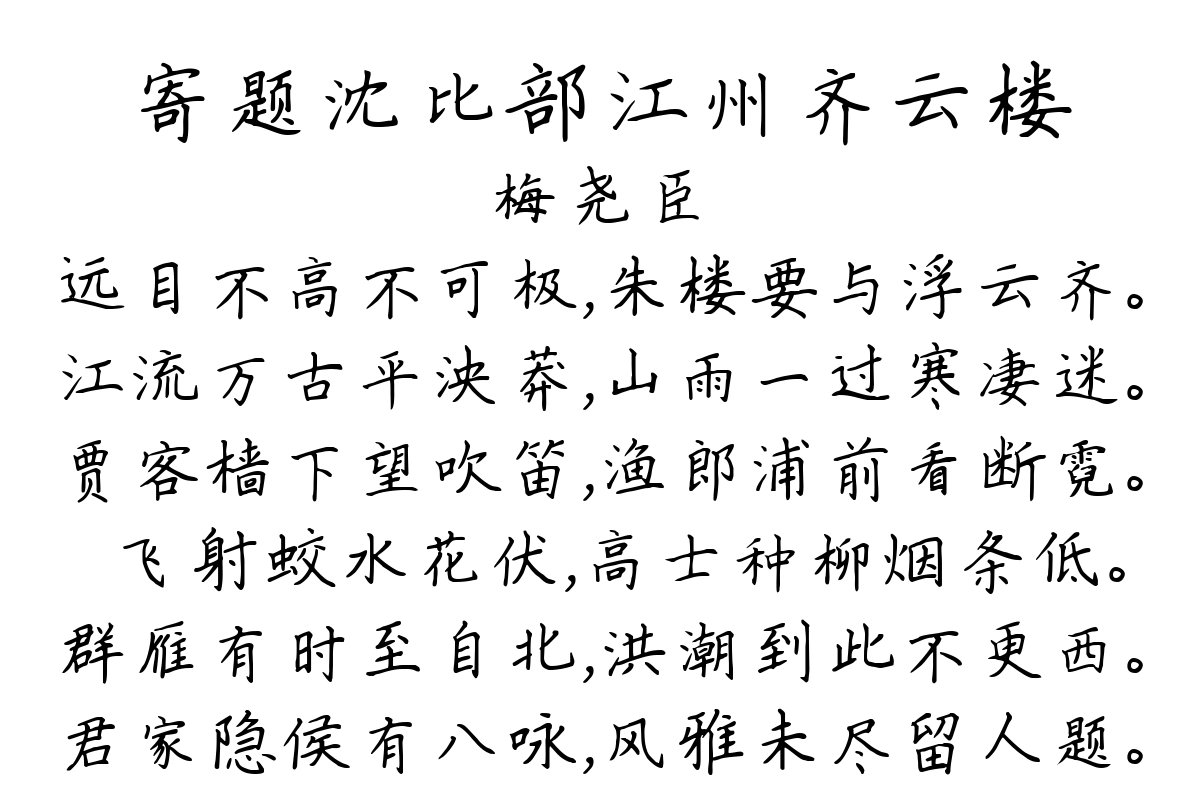 寄题沈比部江州齐云楼
梅尧臣
远目不高不可极,朱楼要与浮云齐。
江流万古平泱莽,山雨一过寒凄迷。
贾客樯下望吹笛,渔郎浦前看断霓。
飞射蛟水花伏,高士种柳烟条低。
群雁有时至自北,洪潮到此不更西。
君家隐侯有八咏,风雅未尽留人题。